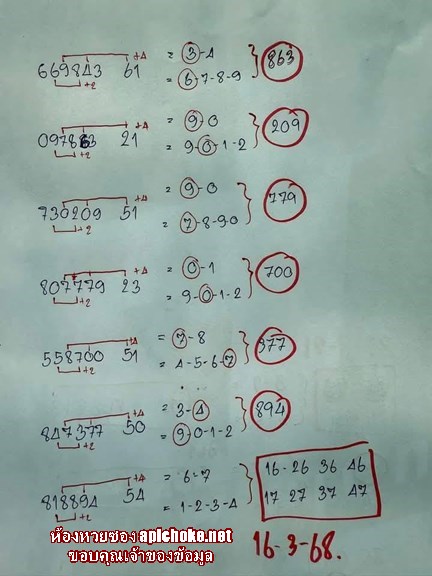 +4 = 3-4
669843 61 863
+2 = 6-7-8-9
+4 = 9-0
097863 21 209
+2 = 9-0-1-2
+4 = 9-0
730209 51 779
+2 = 7-8-9-0
+4 = 0-1
807779 23 700
+2 = 9-0-1-2
+4 = 7-8
558700 51 377
+2 = 4-5-6-7
+4 = 3-4
847377 50 894
+2 = 9-0-1-2
= 6-7
818894 54
= 1-2-3-4
16-26 36 46
17 27 37 47
ห้องหวยซอง apichoke.net
ขอบคุณเจ้าของข้อมูล
16-3-68.